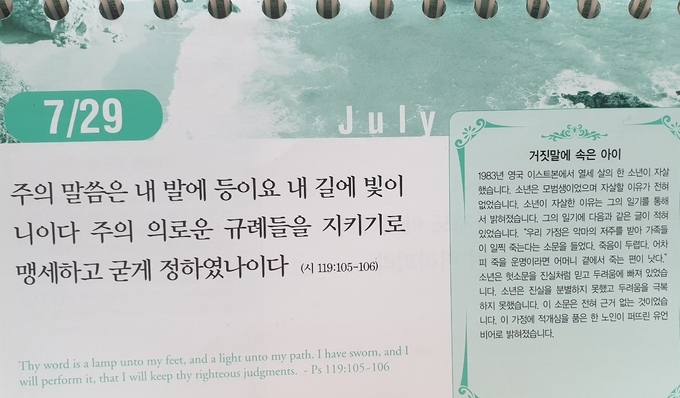 7/29
July
주의 말씀은 내 발에 등이요 내 길에 빛이
니이다 주의 의로운 규례들을 지키기로
맹세하고 굳게 정하였나이다 (시 119:105-106)
Thy word is a lamp unto my feet, and a light unto my path. I have sworn, and I
will perform it, that I will keep thy righteous judgments. - Ps 119:105-106
거짓말에 속은 아이
1983년 영국 이스트본에서 열세 살의 한 소년이 자살
했습니다. 소년은 모범생이었으며 자살할 이유가 전혀
없었습니다. 소년이 자살한 이유는 그의 일기를 통해
서 밝혀졌습니다. 그의 일기에 다음과 같은 글이 적혀
있었습니다. "우리 가정은 악마의 저주를 받아 가족들
이 일찍 죽는다는 소문을 들었다. 죽음이 두렵다. 어차
피 죽을 운명이라면 어머니 곁에서 죽는 편이 낫다."
소년은 헛소문을 진실처럼 믿고 두려움에 빠져 있었습
니다. 소년은 진실을 분별하지 못했고 두려움을 극복
하지 못했습니다. 이 소문은 전혀 근거 없는 것이었습
니다. 이 가정에 적개심을 품은 한 노인이 퍼뜨린 유언
비어로 밝혀졌습니다.